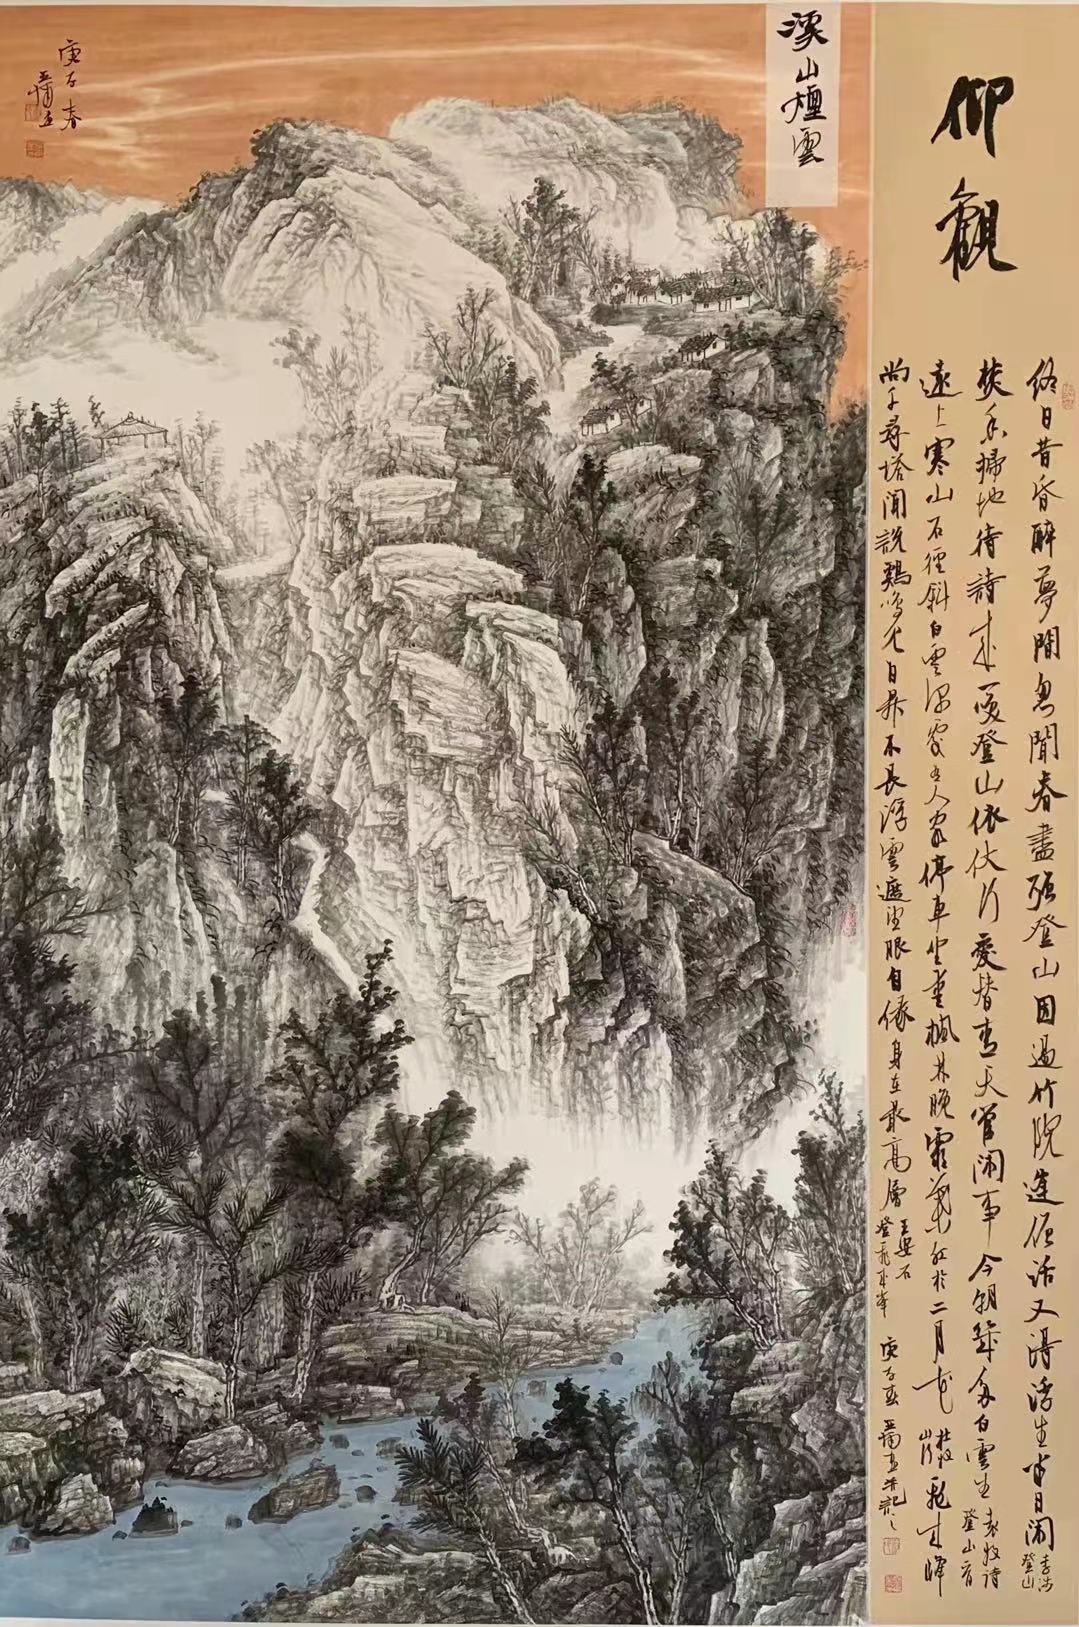 溪山煙雲
庚子春
仰觀
終日昏昏醉夢間忽聞春盡强登山因過竹院逢僧話又得浮生半日閑
李涉
登山
焚香掃地待詩成一笑登山依仗行愛替青天管閑事今朝幾朵白雲生
袁枚詩
登山有
遠上寒山石徑斜白雲深處有人家停車坐愛楓林晚霜葉紅於二月花
杜牧
山行
飛來峰
尚千尋塔聞說鷄鳴見日昇不畏浮雲遮望眼自緣身在最高層
王安石
登飛來峰
庚子春